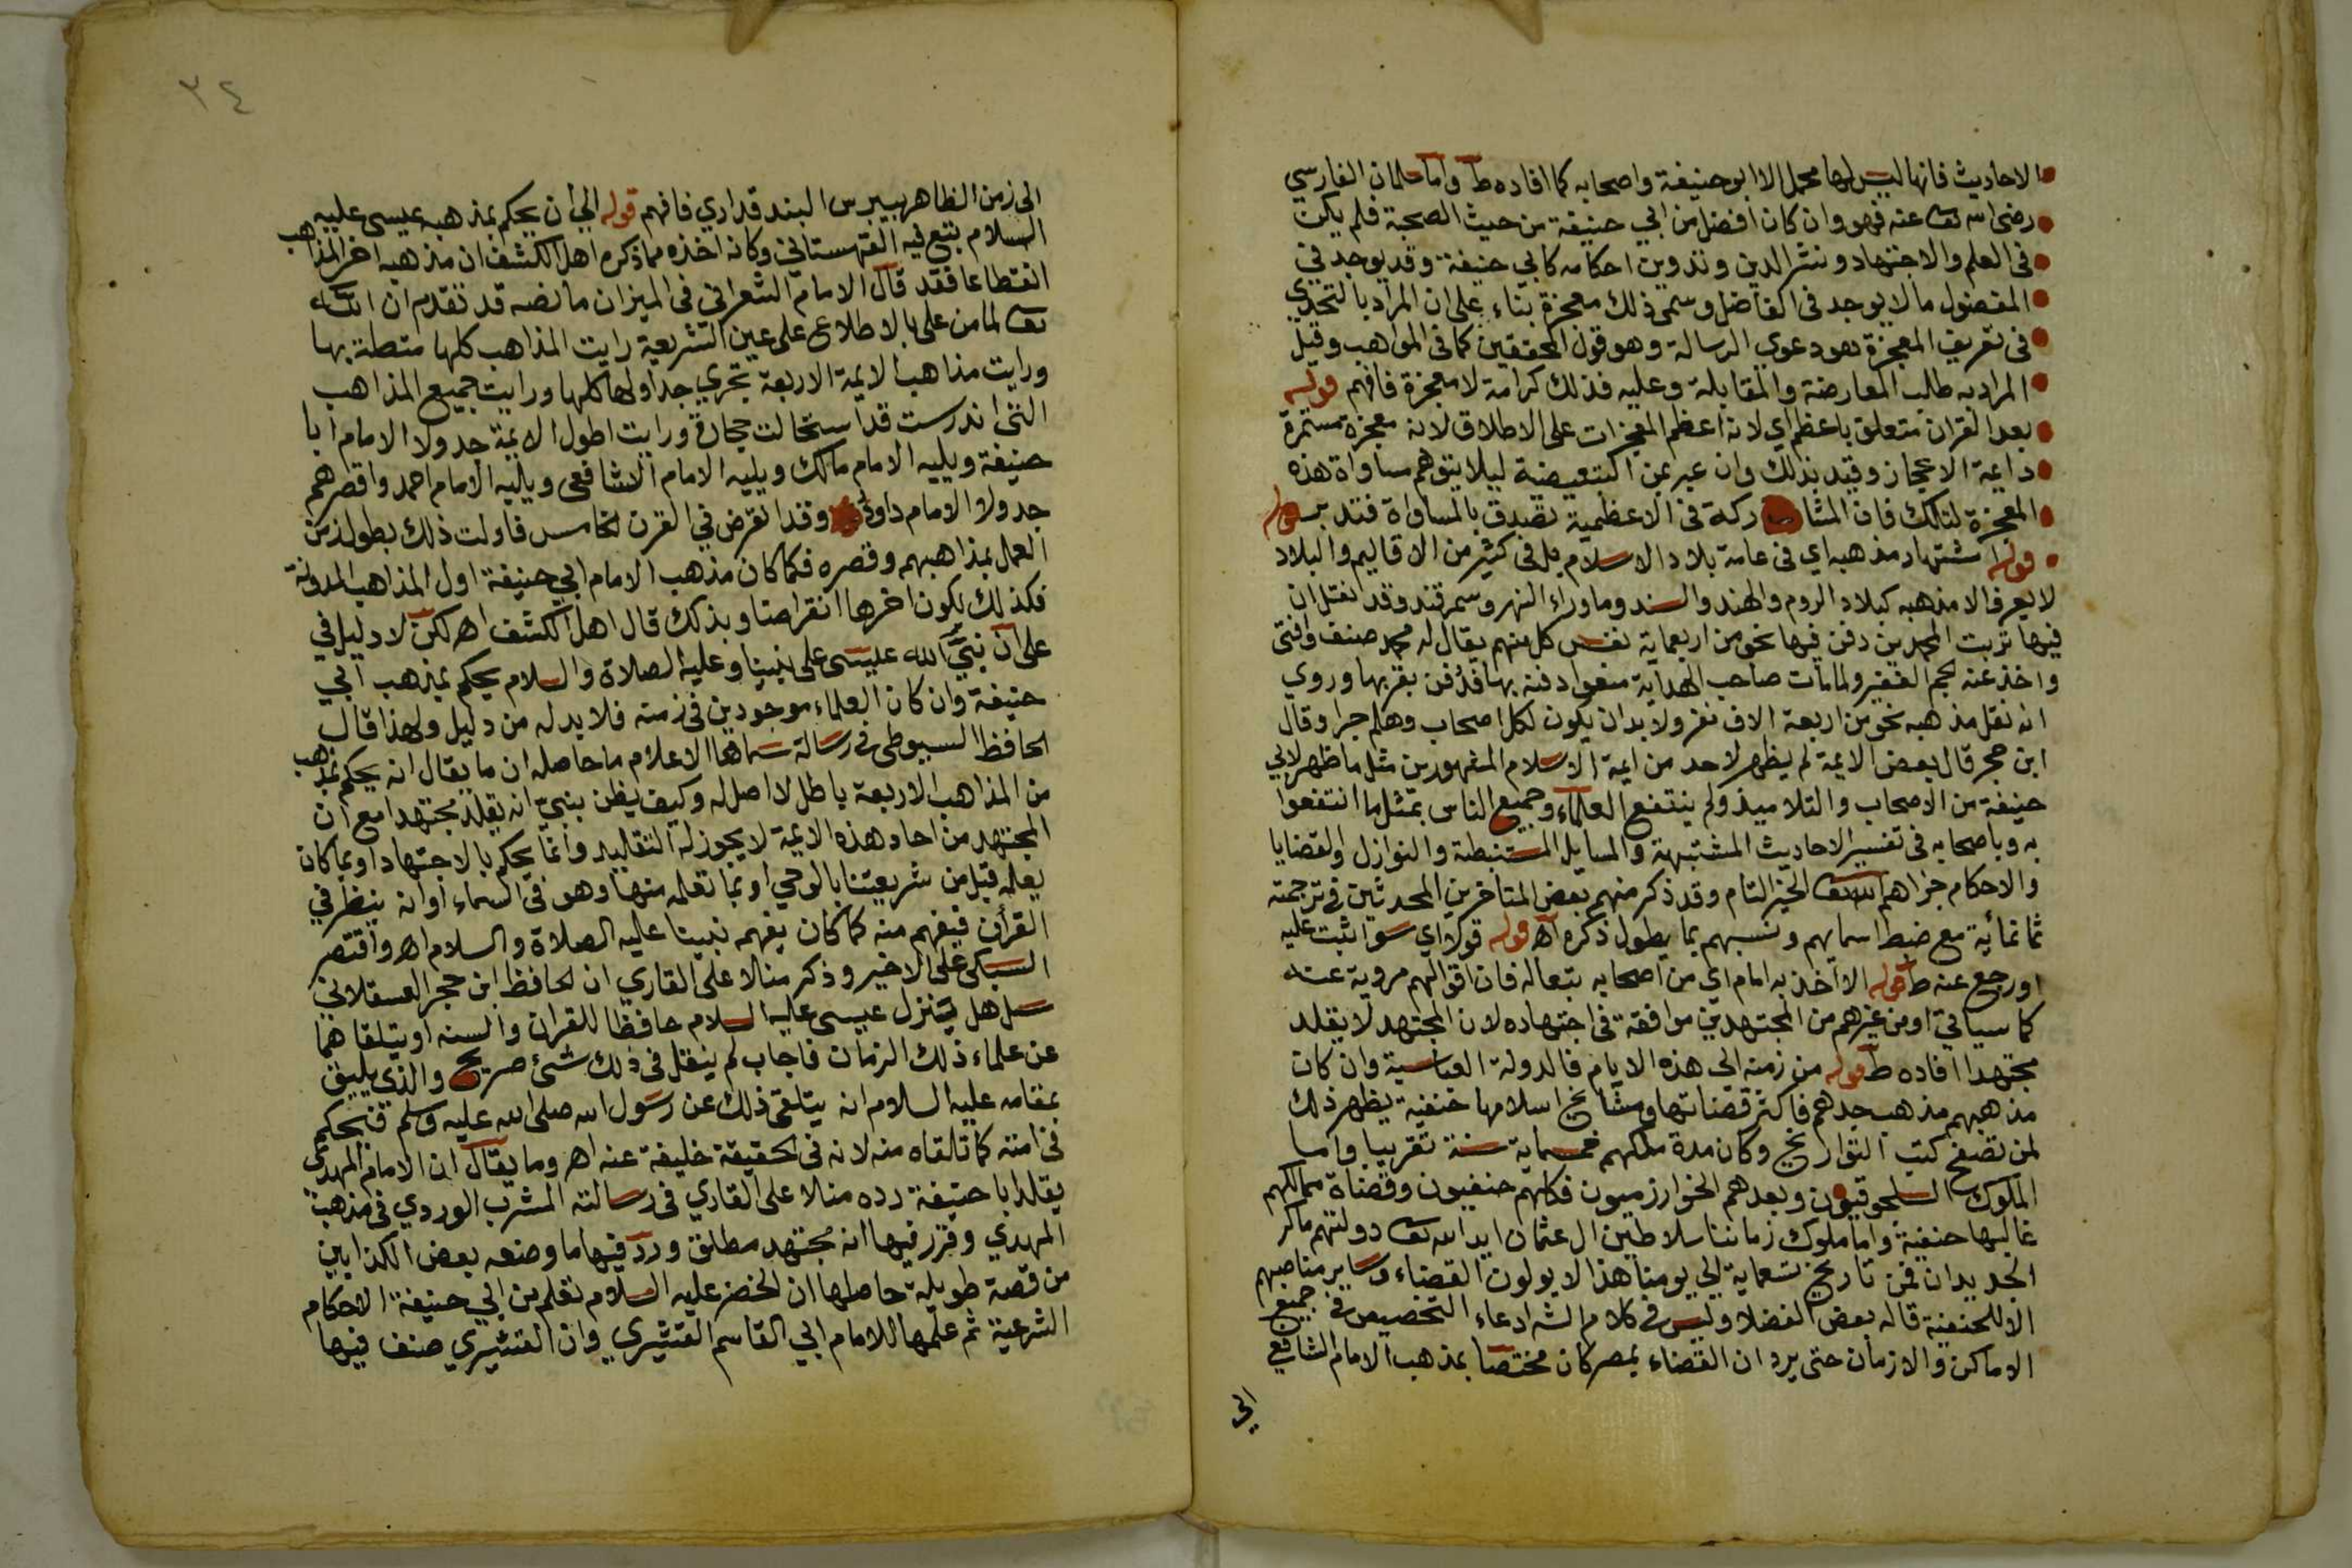 الاحاديث فانها ليس لها محمل الا ابو حنيفة واصحابه كما افاده ط واما سلمان الفارسي
رضي الله تعا عنه فهو وان كان افضل من ابي حنيفة من حيث الصحبة فلم يكن
في العلم والاجتهاد ونشر الدين وتدوين احكامه كابي حنيفة وقد يوجد في
المفضول ما لا يوجد في الفاضل وسمى ذلك معجزة بناء على ان المراد بالتحدي
في تعريف المعجزة هو دعوي الرسالة وهو قول المحققين كما في المواهب وقيل
المراد به طلب المعارضة والمقابلة وعليه فذلك كرامة لا معجزة فافهم قوله
بعد القران متعلق باعظم اي لانه اعظم المعجزات على الاطلاق لانه معجزة مستمرة
دايمة الاعجاز وقيد بذلك وان عبر بمن التبعيضية ليلا يتوهم مساواة هذه
المعجزة لتلك فان المشاركة في الاعظمية تصدق بالمساواة فتدبر
قوله اشتهار مذهبه اي في عامة بلاد الاسلام بل في كثير من الاقاليم والبلاد
لا يعرف الا مذهبه كبلاد الروم والهند والسند وما وراء النهر وسمرقند وقد نقل ان
فيها تربت المحمدين دفن فيها نحو من اربعماية نفس كل منهم يقال له محمد صنف وافتى
واخذ عنه الجم الغفير ولما مات صاحب الهداية منعوا دفنه بها فدفن بقربها وروي
انه نقل مذهبه نحو من اربعة الاف نفر ولا بد ان يكون لكل اصحاب وهلم جرا وقال
ابن حجر قال بعض الايمة لم يظهر لاحد من ايمة الاسلام المشهورين مثل ما ظهر لابي
حنيفة من الاصحاب والتلاميذ ولم ينتفع العلماء وجميع الناس بمثل ما انتفعوا
به وباصحابه في تفسير الاحاديث المشتبهة والمسايل المستنبطة والنوازل والقضايا
والاحكام جزاهم الله تعا الخير التام وقد ذكر منهم بعض المتاخرين المحدثين في ترجمته
ثمانمائة مع ضبط اسمايهم ونسبهم بما يطول ذكره اه قوله قولا اي سوا ثبت عليه
او رجع عنه ط قوله الا اخذ به امام اي من اصحابه تبعا له فان اقوالهم مروية عنه
كما سياتي او من غيرهم من المجتهدين موافقة في اجتهاده لان المجتهد لا يقلد
مجتهدا افاده ط قوله من زمنه الي هذه الايام فالدولة العباسية وان كان
مذهبهم مذهب جدهم فاكثر قضاتها ومشايخ اسلامها حنفية يظهر ذلك
لمن تصفح كتب التواريخ وكان مدة ملكهم خمسماية سنة تقريبا واما
الملوك السلجوقيون وبعدهم الخوارزميون فكلهم حنفيون وقضاة ممالكهم
غالبها حنفية واما ملوك زماننا سلاطين ال عثمان ايد الله تعا دولتهم ما كر
الجديدان فمن تاريخ تسعماية الي يومنا هذا لا يولون القضاء وساير مناصبهم
الا للحنفية قاله بعض الفضلا وليس في كلام الش ادعاء التخصيص في جميع
الاماكن والازمان حتى يرد ان القضاء بمصر كان مختصا بمذهب الامام الشافعي
الي
٣٤
الى زمن الظاهر بيبرس البندقداري فافهم قوله الي ان يحكم بمذهبه عيسى عليه
السلام تبع فيه القهستاني وكانه اخذه مما ذكره اهل الكشف ان مذهبه اخر المذاهب
انقطاعا فقد قال الامام الشعراني في الميزان ما نصه قد تقدم ان الله
تعا لما من علي بالاطلاع على عين الشريعة رايت المذاهب كلها متصلة بها
ورايت مذاهب الايمة الاربعة تجري جداولها كلها ورايت جميع المذاهب
التي اندرست قد استحالت حجارة ورايت اطول الايمة جدولا الامام ابا
حنيفة ويليه الامام مالك ويليه الامام الشافعي ويليه الامام احمد واقصرهم
جدولا الامام داود وقد انقرض في القرن الخامس فاولت ذلك بطول زمن
العمل بمذاهبهم وقصره فكما كان مذهب الامام ابي حنيفة اول المذاهب المدونة
فكذلك يكون اخرها انقراضا وبذلك قال اهل الكشف اه لكن لا دليل في
على ان نبي الله عيسى على نبينا وعليه الصلاة والسلام يحكم بمذهب ابي
حنيفة وان كان العلماء موجودين في زمنه فلا بد له من دليل ولهذا قال
الحافظ السيوطي في رسالة سماها الاعلام ما حاصله ان ما يقال انه يحكم بمذهب
من المذاهب الاربعة باطل لا اصل له وكيف يظن بنبي انه يقلد مجتهدا مع ان
المجتهد من احاد هذه الايمة لا يجوز له التقليد وانما يحكم بالاجتهاد او بما كان
يعلمه قبل من شريعتنا بالوحي او بما تعلمه منها وهو في السماء او انه ينظر في
القرأن فيفهم منه كما كان يفهم نبينا عليه الصلاة والسلام اه واقتصر
السبكي على الاخير وذكر منلا على القاري ان الحافظ ابن حجر العسقلاني
سل هل ينزل عيسى عليه السلام حافظا للقران والسنه او يتلقاهما
عن علماء ذلك الزمان فاجاب لم ينقل في ذلك شئ صريح والذي يليق
بمقامه عليه السلام انه يتلقى ذلك عن رسول الله صلى الله عليه وسلم فيحكم
في امته كما تلقاه منه لانه في الحقيقة خليفة عنه اه وما يقال ان الامام المهدي
يقلد ابا حنيفة رده منلا على القاري في رسالته المشرب الوردي في مذهب
المهدي وقرر فيها انه مجتهد مطلق ورد فيها ما وضعه بعض الكذابين
من قصة طويلة حاصلها ان الخضر عليه السلام تعلم من ابي حنيفة الاحكام
الشرعية ثم علمها للامام ابي القاسم القشيري وان القشيري صنف فيها